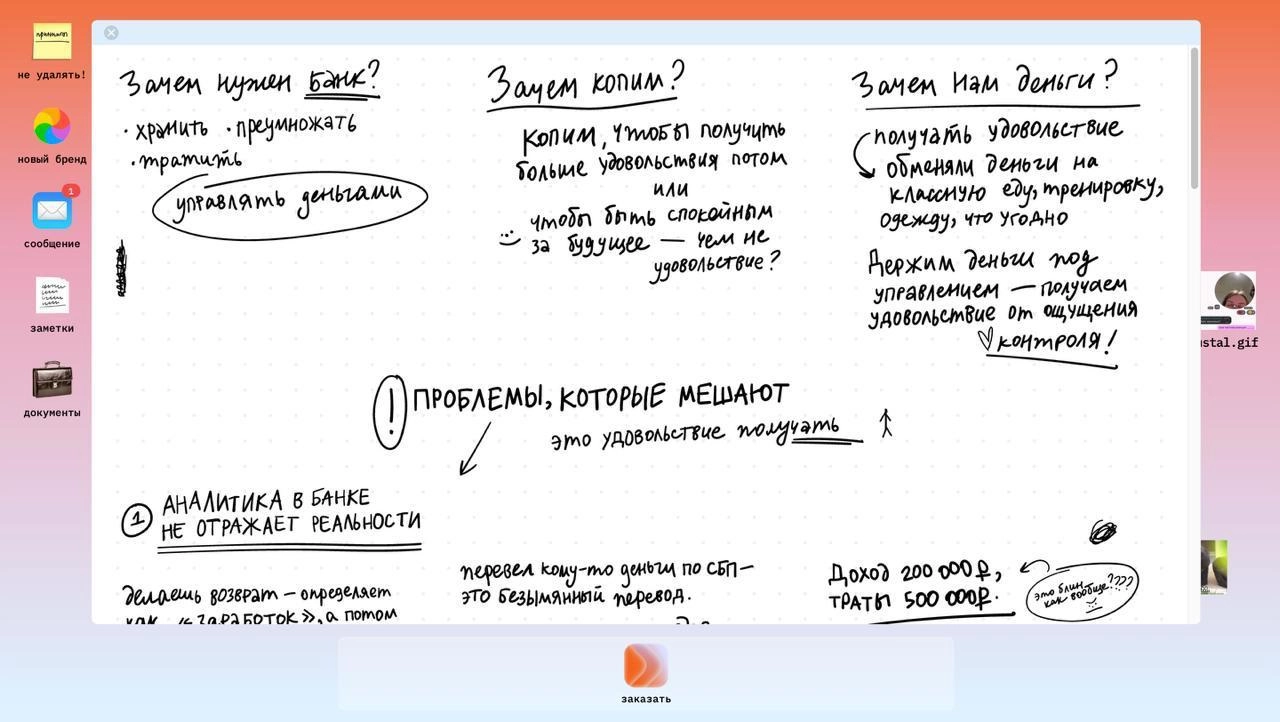 принтом
не удалять!
новый бренд
1
сообщение
заметки
документы
Зачем нужен банк?
· хранить · преумножать
· тратить
управлять деньгами
Зачем копим?
копим, чтобы получить
больше удовольствия потом
или
чтобы быть спокойным
за будущее — чем не
удовольствие?
Зачем нам деньги?
получать удовольствие
обменяли деньги на
классную еду, тренировку,
одежду, что угодно
Держим деньги под
управлением — получаем
удовольствие от ощущения
контроля!
! ПРОБЛЕМЫ, КОТОРЫЕ МЕШАЮТ
это удовольствие получать
1 АНАЛИТИКА В БАНКЕ
НЕ ОТРАЖАЕТ РЕАЛЬНОСТИ
делаешь возврат — определяет
как «ЗАРАБОТОК», а потом
перевел кому-то деньги по СБП —
это безымянный перевод.
Доход 200 000₽,
траты 500 000₽.
это блин
как вообще????
ustal.gif
заказать